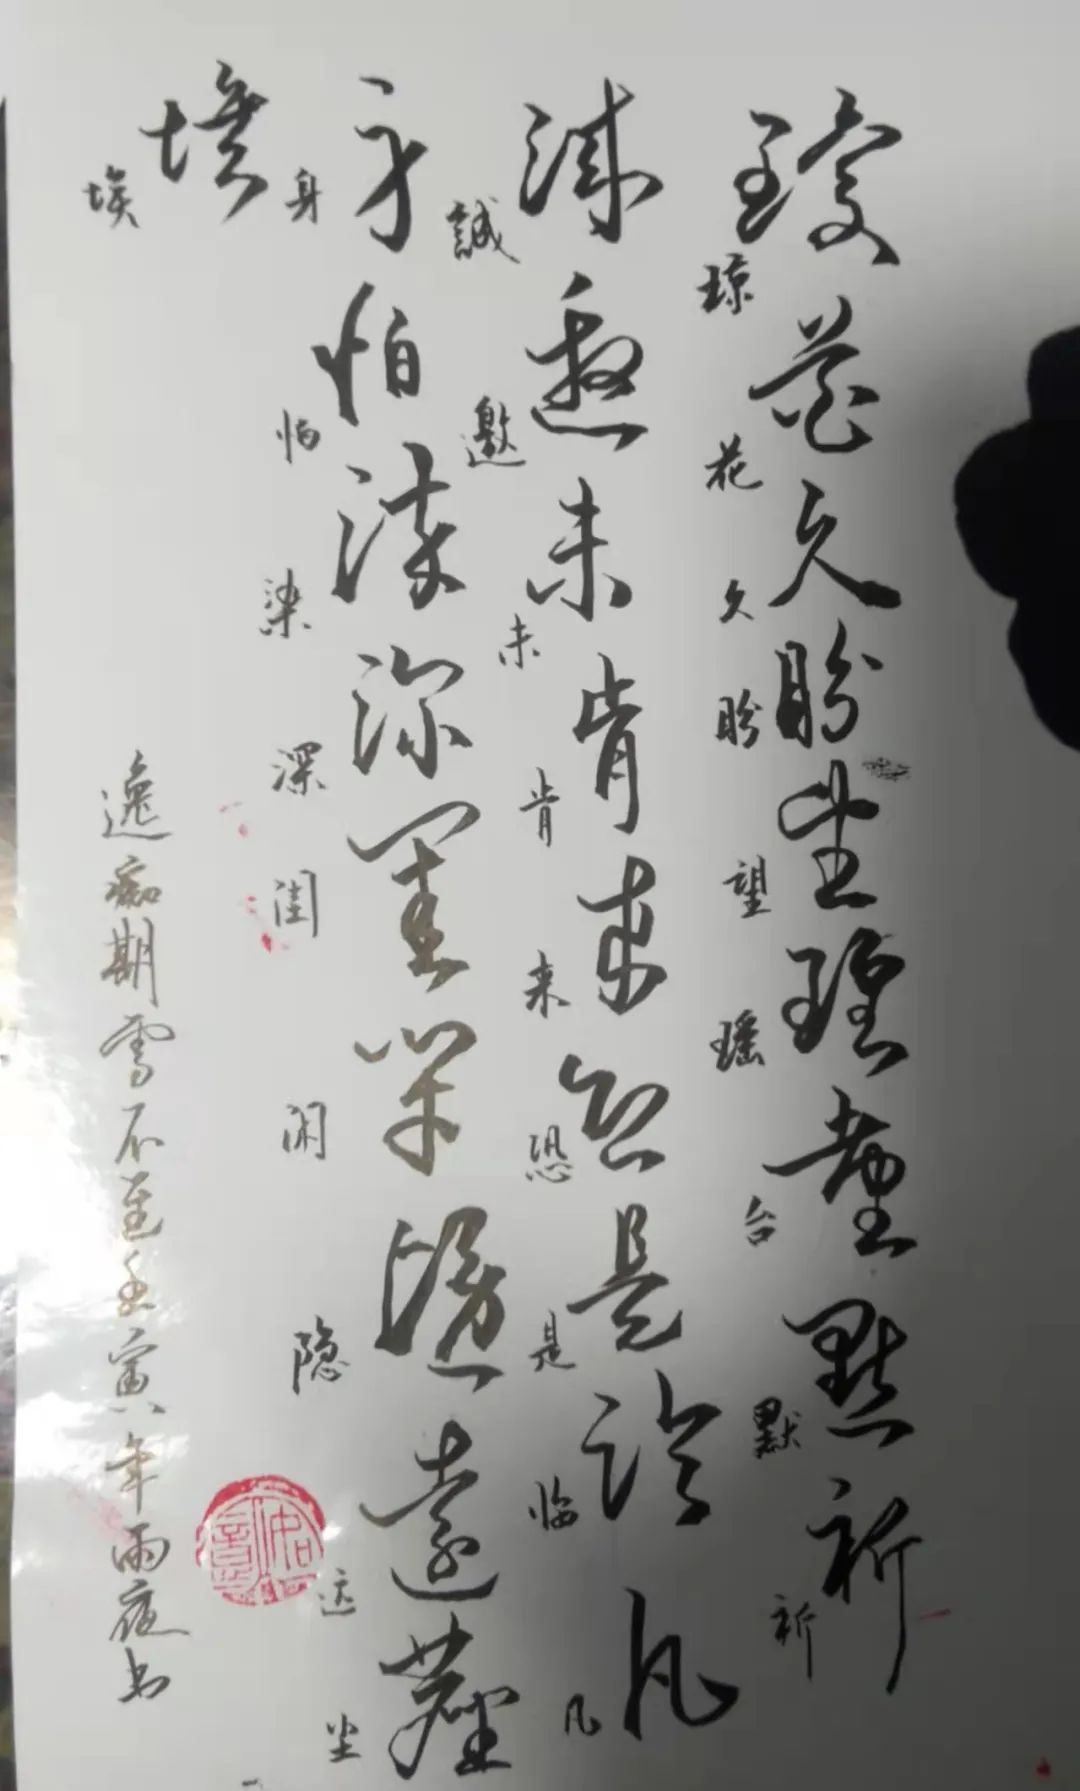 琼花久盼望瑶台默祈
誠邀未肯来恐是临凡
身怕染深闺闲隐远尘
埃
琼花久盼望瑶台默祈
誠邀未肯来恐是临凡
身怕染深闺闲隐远尘
埃
逸痴期雪不至壬寅年雨夜书